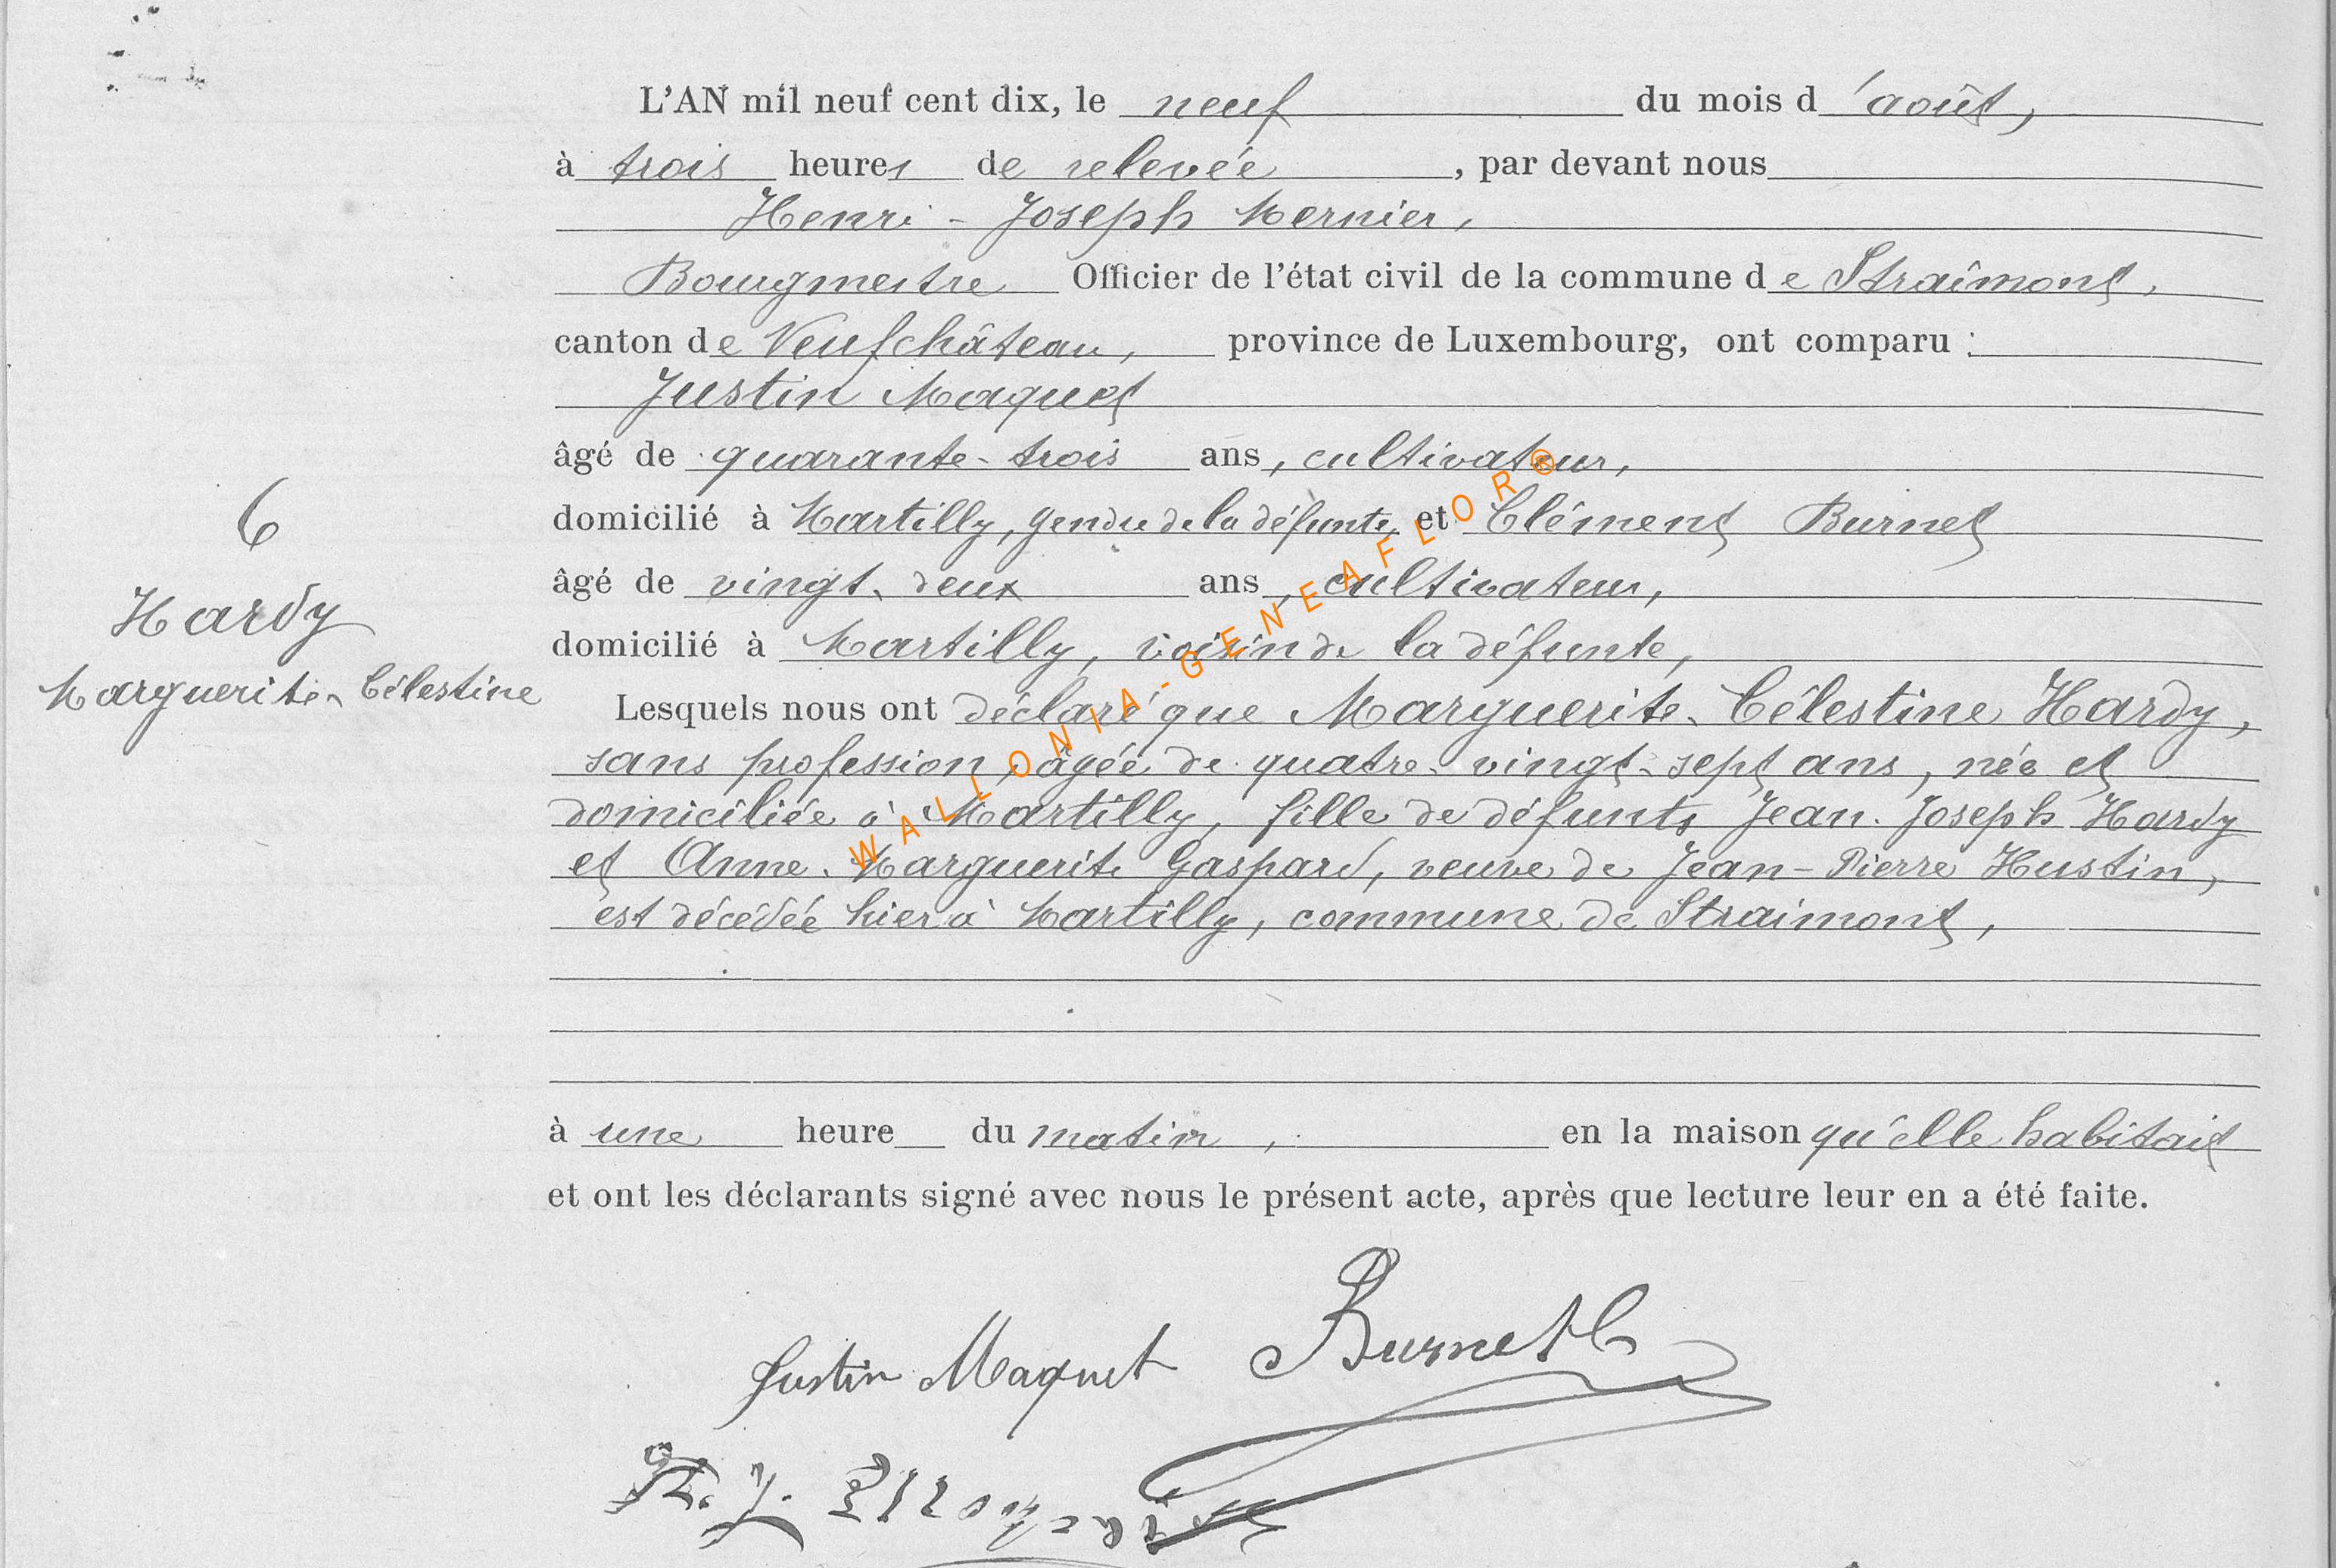 L'AN mil neuf cent dix, le neuf du mois d'août,
à trois heures de relevée, par devant nous
Henri-Joseph Mernier,
Bourgmestre Officier de l'état civil de la commune de Straimont,
canton de Neufchâteau, province de Luxembourg, ont comparu :
Justin Maquet
âgé de quarante-trois ans, cultivateur,
domicilié à Martilly, gendre de la défunte, et Clément Burnet
âgé de vingt-deux ans, cultivateur,
domicilié à Martilly, voisin de la défunte,
6
Hardy
Marguerite-Célestine
Lesquels nous ont déclaré que Marguerite-Célestine Hardy,
sans profession, âgée de quatre-vingt-sept ans, née et
domiciliée à Martilly, fille de défunts Jean-Joseph Hardy
et Anne-Marguerite Gaspard, veuve de Jean-Pierre Hustin,
est décédée hier à Martilly, commune de Straimont,
à une heure du matin, en la maison qu'elle habitait
et ont les déclarants signé avec nous le présent acte, après que lecture leur en a été faite.
Justin Maquet Burnet C
H. J.
WALLONIA-GENEAFLOR®